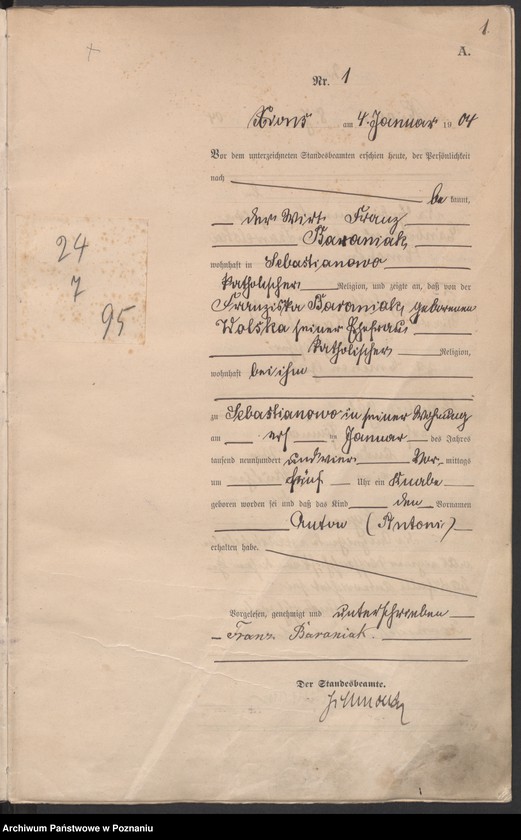 1.
A.
Nr. 1
Xions am 4. Januar 19 04
Vor dem unterzeichneten Standesbeamten erschien heute, der Persönlichkeit
nach
be kannt,
der Wirt Franz
Baraniak,
wohnhaft in Sebastianowo
katholischer Religion, und zeigte an, daß von der
Franziska Baraniak, geborenen
Wolska seiner Ehefrau
katholischer Religion,
wohnhaft bei ihm
zu Sebastianowo in seiner Wohnung
am ten Januar des Jahres
tausend neunhundert und vier Vor mittags
um fünf Uhr ein Knabe
geboren worden sei und daß das Kind den Vornamen
Anton (Antoni)
erhalten habe.
Vorgelesen, genehmigt und unterschrieben
Franz Baraniak.
Der Standesbeamte.
24
7
95
Archiwum Państwowe w Poznaniu